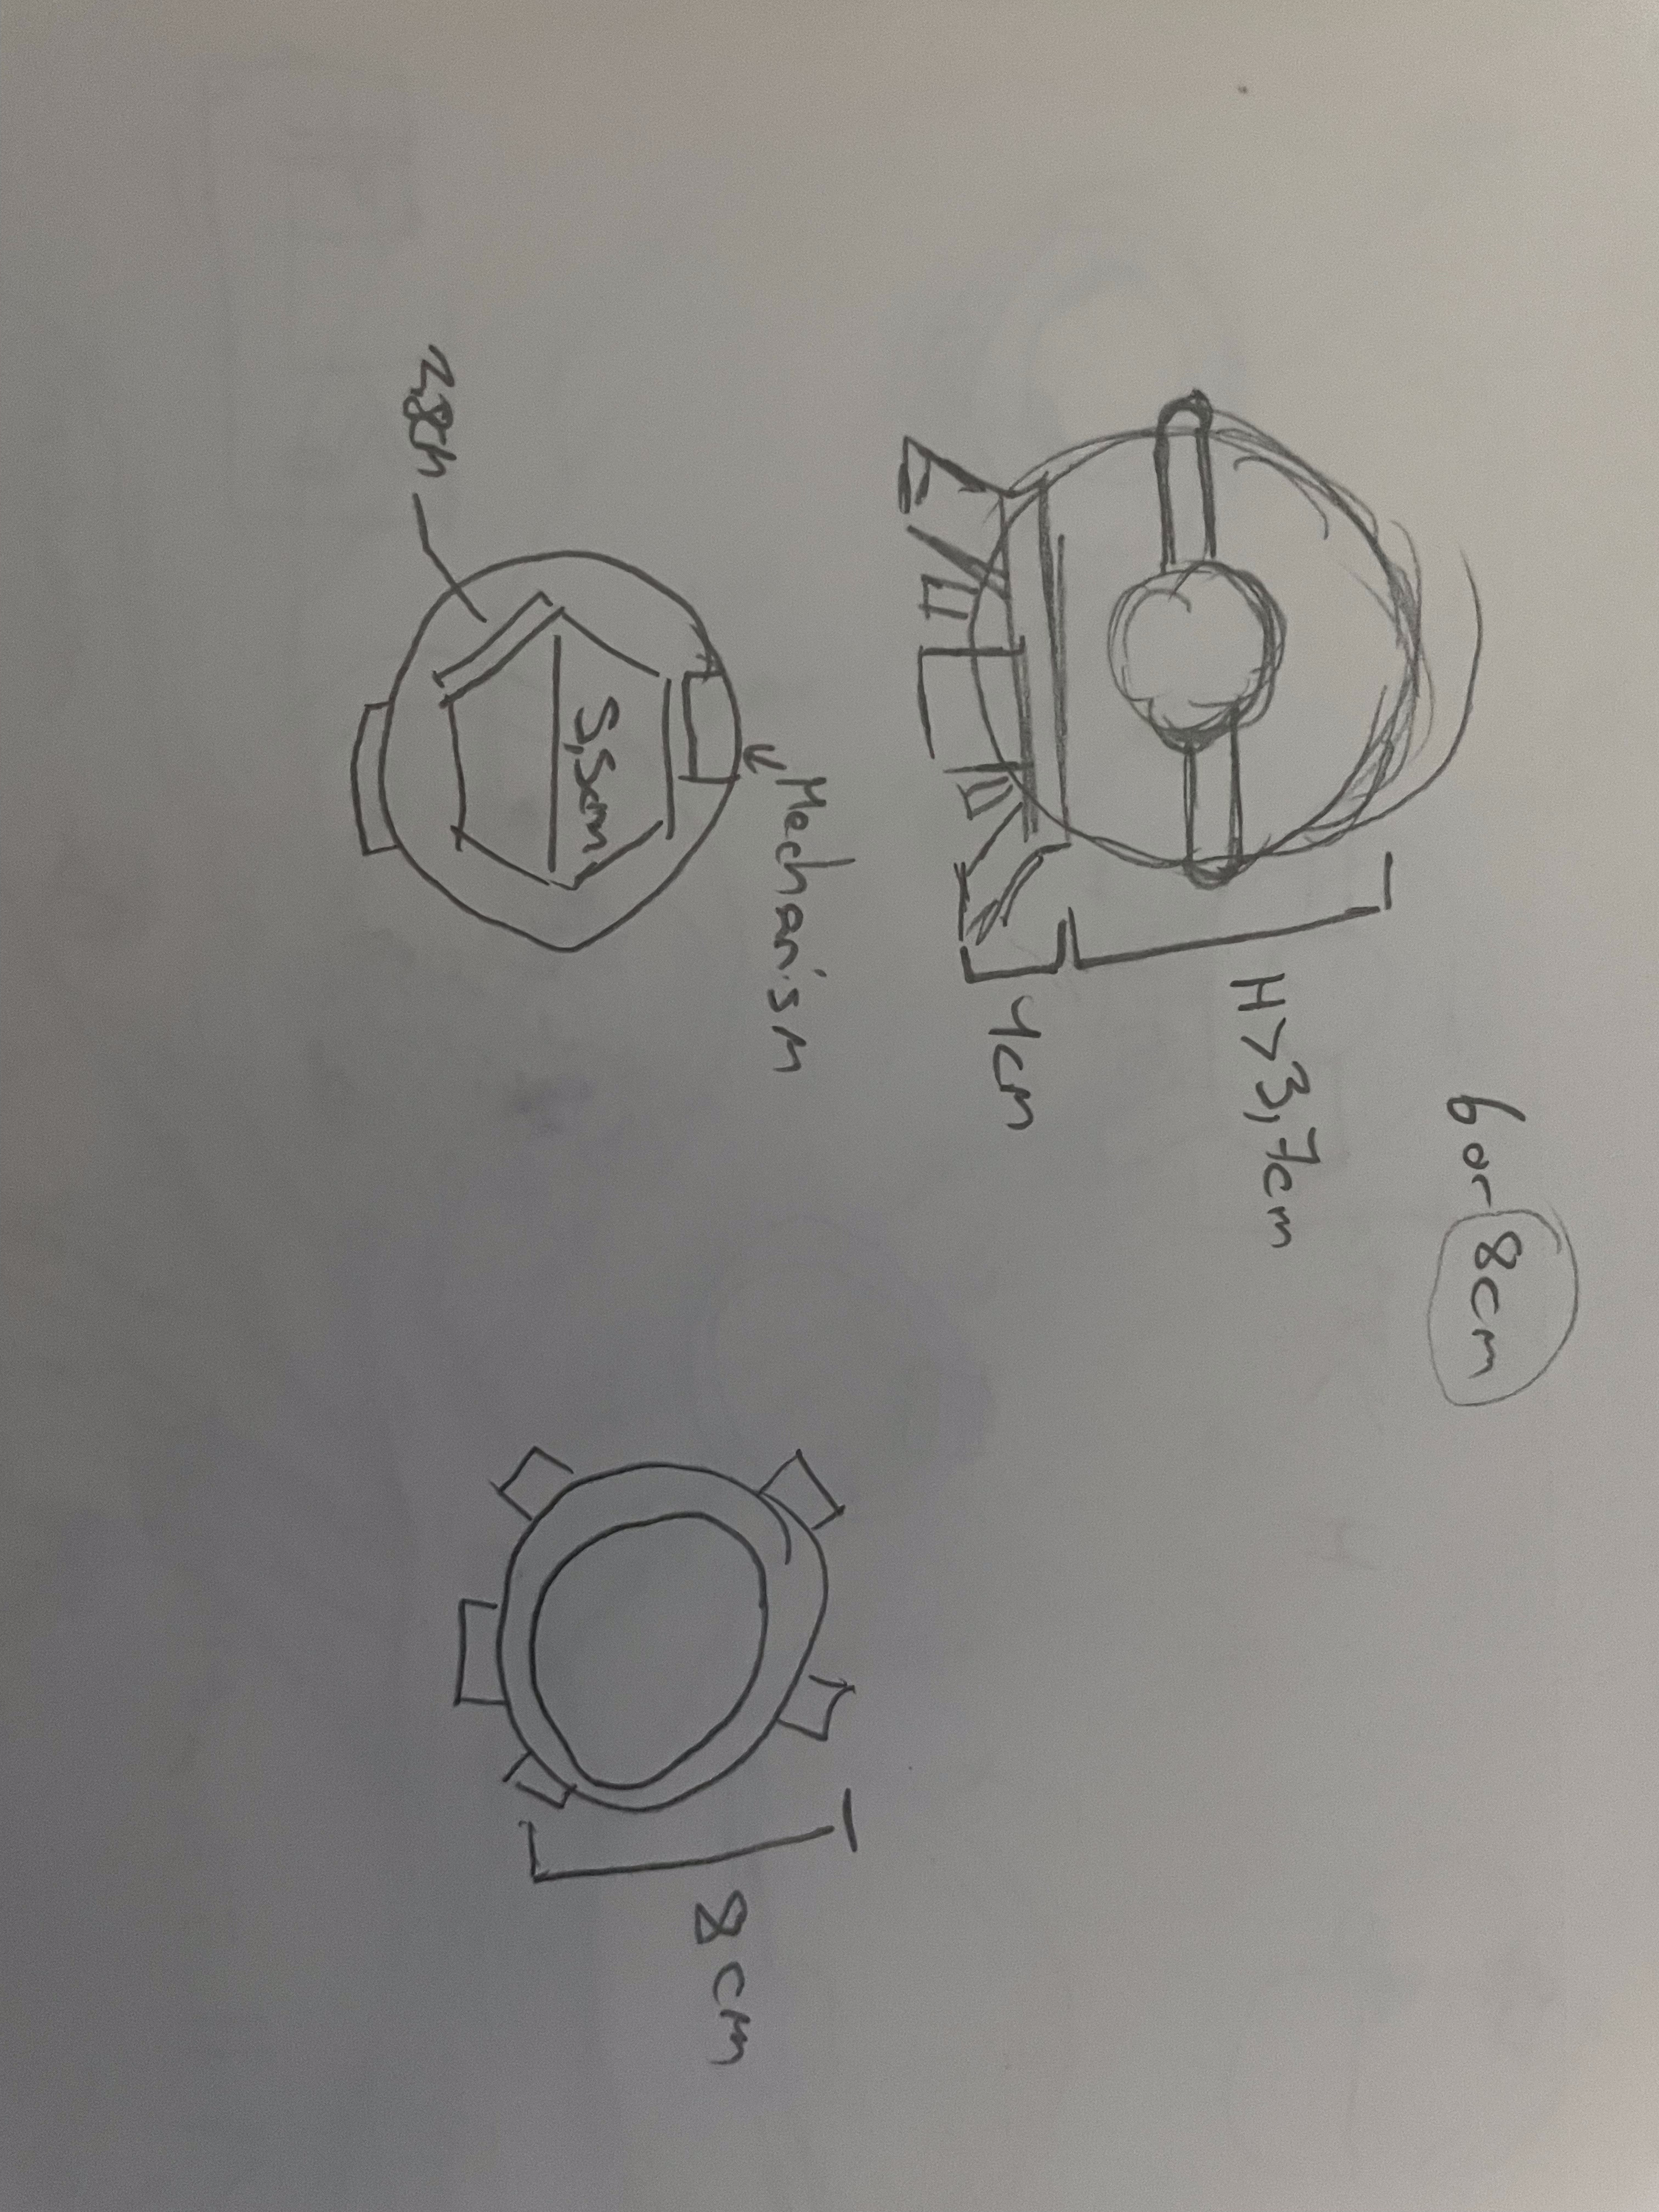 6 or 8cm
H>3,7cm
4cm
Mechanism
5,5cm
2,8cm
8cm